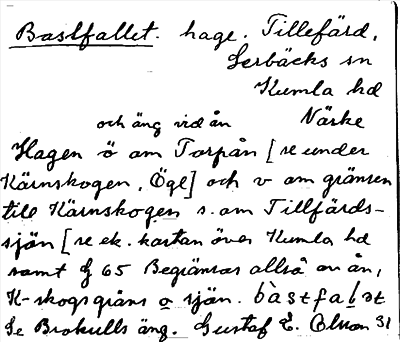 Bastfallet. hage. Tillefärd,
Lerbäcks sn
Kumla hd
och äng vid ån Närke
Hagen ö om Torpån [se under
Kärnskogen, Ögl] och v om gränsen
till Kärnskogen s. om Tillfärds-
sjön [se ek. kartan över Kumla hd
samt § 65 Begränsas alltså av ån,
K-skogsgräns o sjön. bàstfalət
Se Brokulls äng. Gustaf E. Olson 31